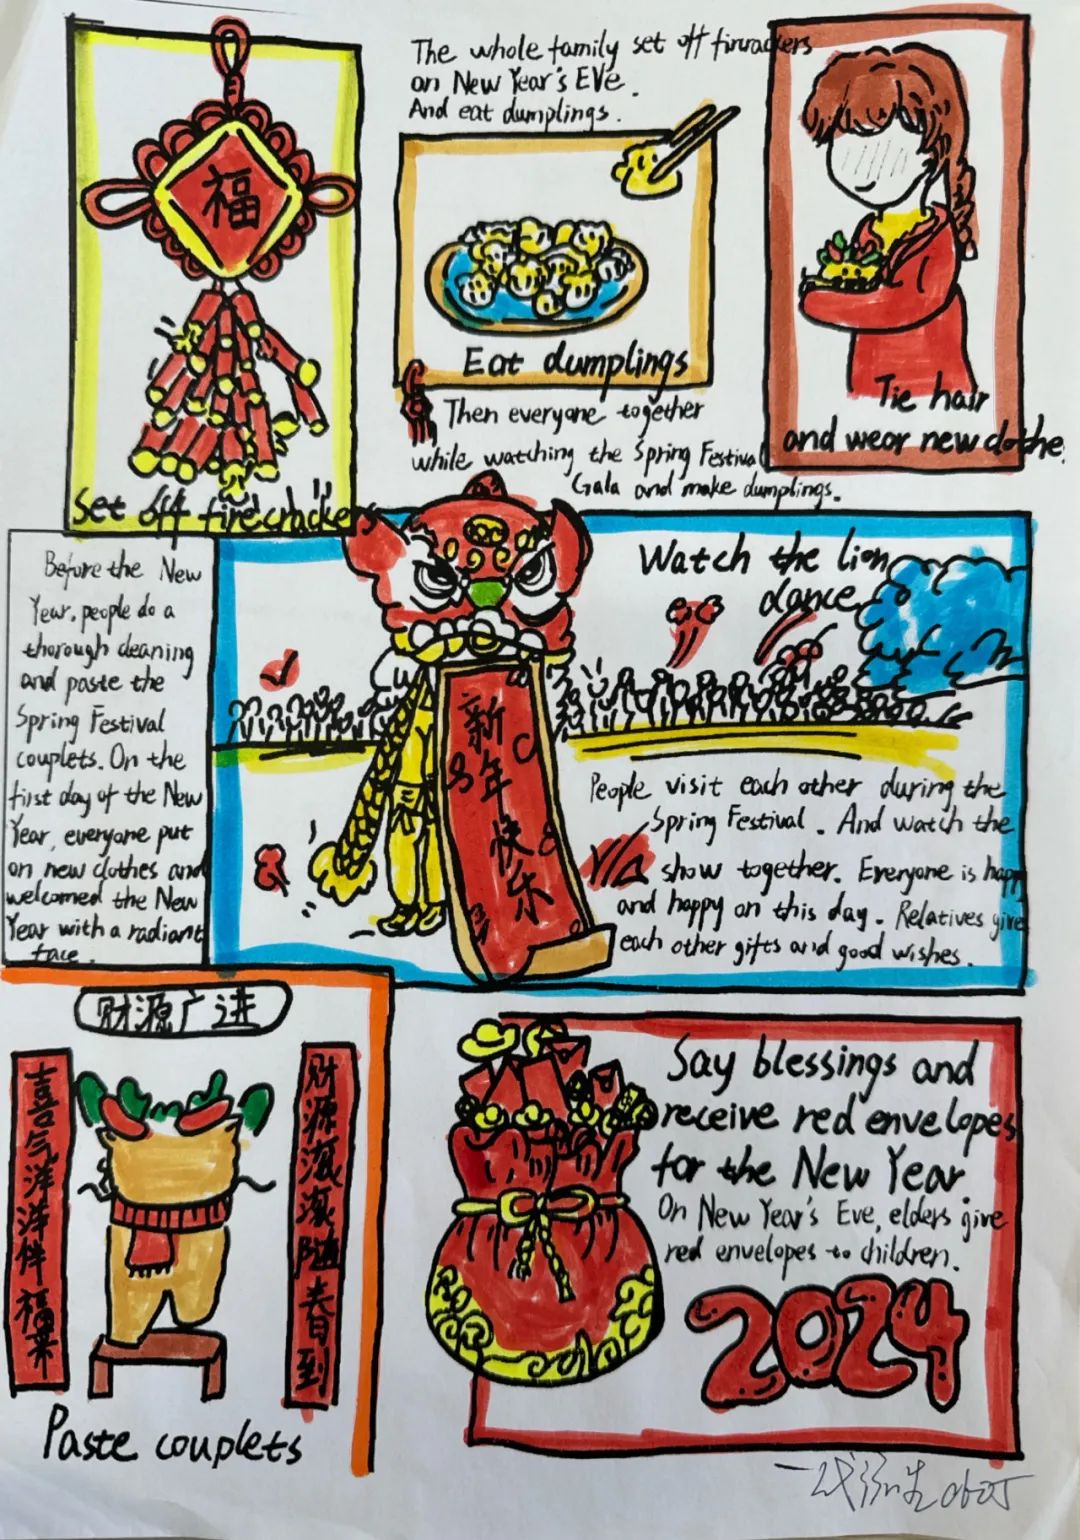 The whole family set off firrackers
on New Year's Eve.
And eat dumplings.
福
Set off firecrackers
Eat dumplings
Tie hair
and wear new clothe.
Then everyone together
while watching the Spring Festival
Gala and make dumplings.
Before the New
Year, people do a
thorough cleaning
and paste the
Spring Festival
couplets. On the
first day of the New
Year, everyone put
on new clothes and
welcomed the New
Year with a radiant
face.
Watch the lion
dance
新
年
快
乐
People visit each other during the
Spring Festival. And watch the
show together. Everyone is happy
and happy on this day. Relatives give
each other gifts and good wishes.
财源广进
喜气洋洋伴福来
财源滚滚随春到
Paste couplets
Say blessings and
receive red envelopes
for the New Year
On New Year's Eve, elders give
red envelopes to children.
2024